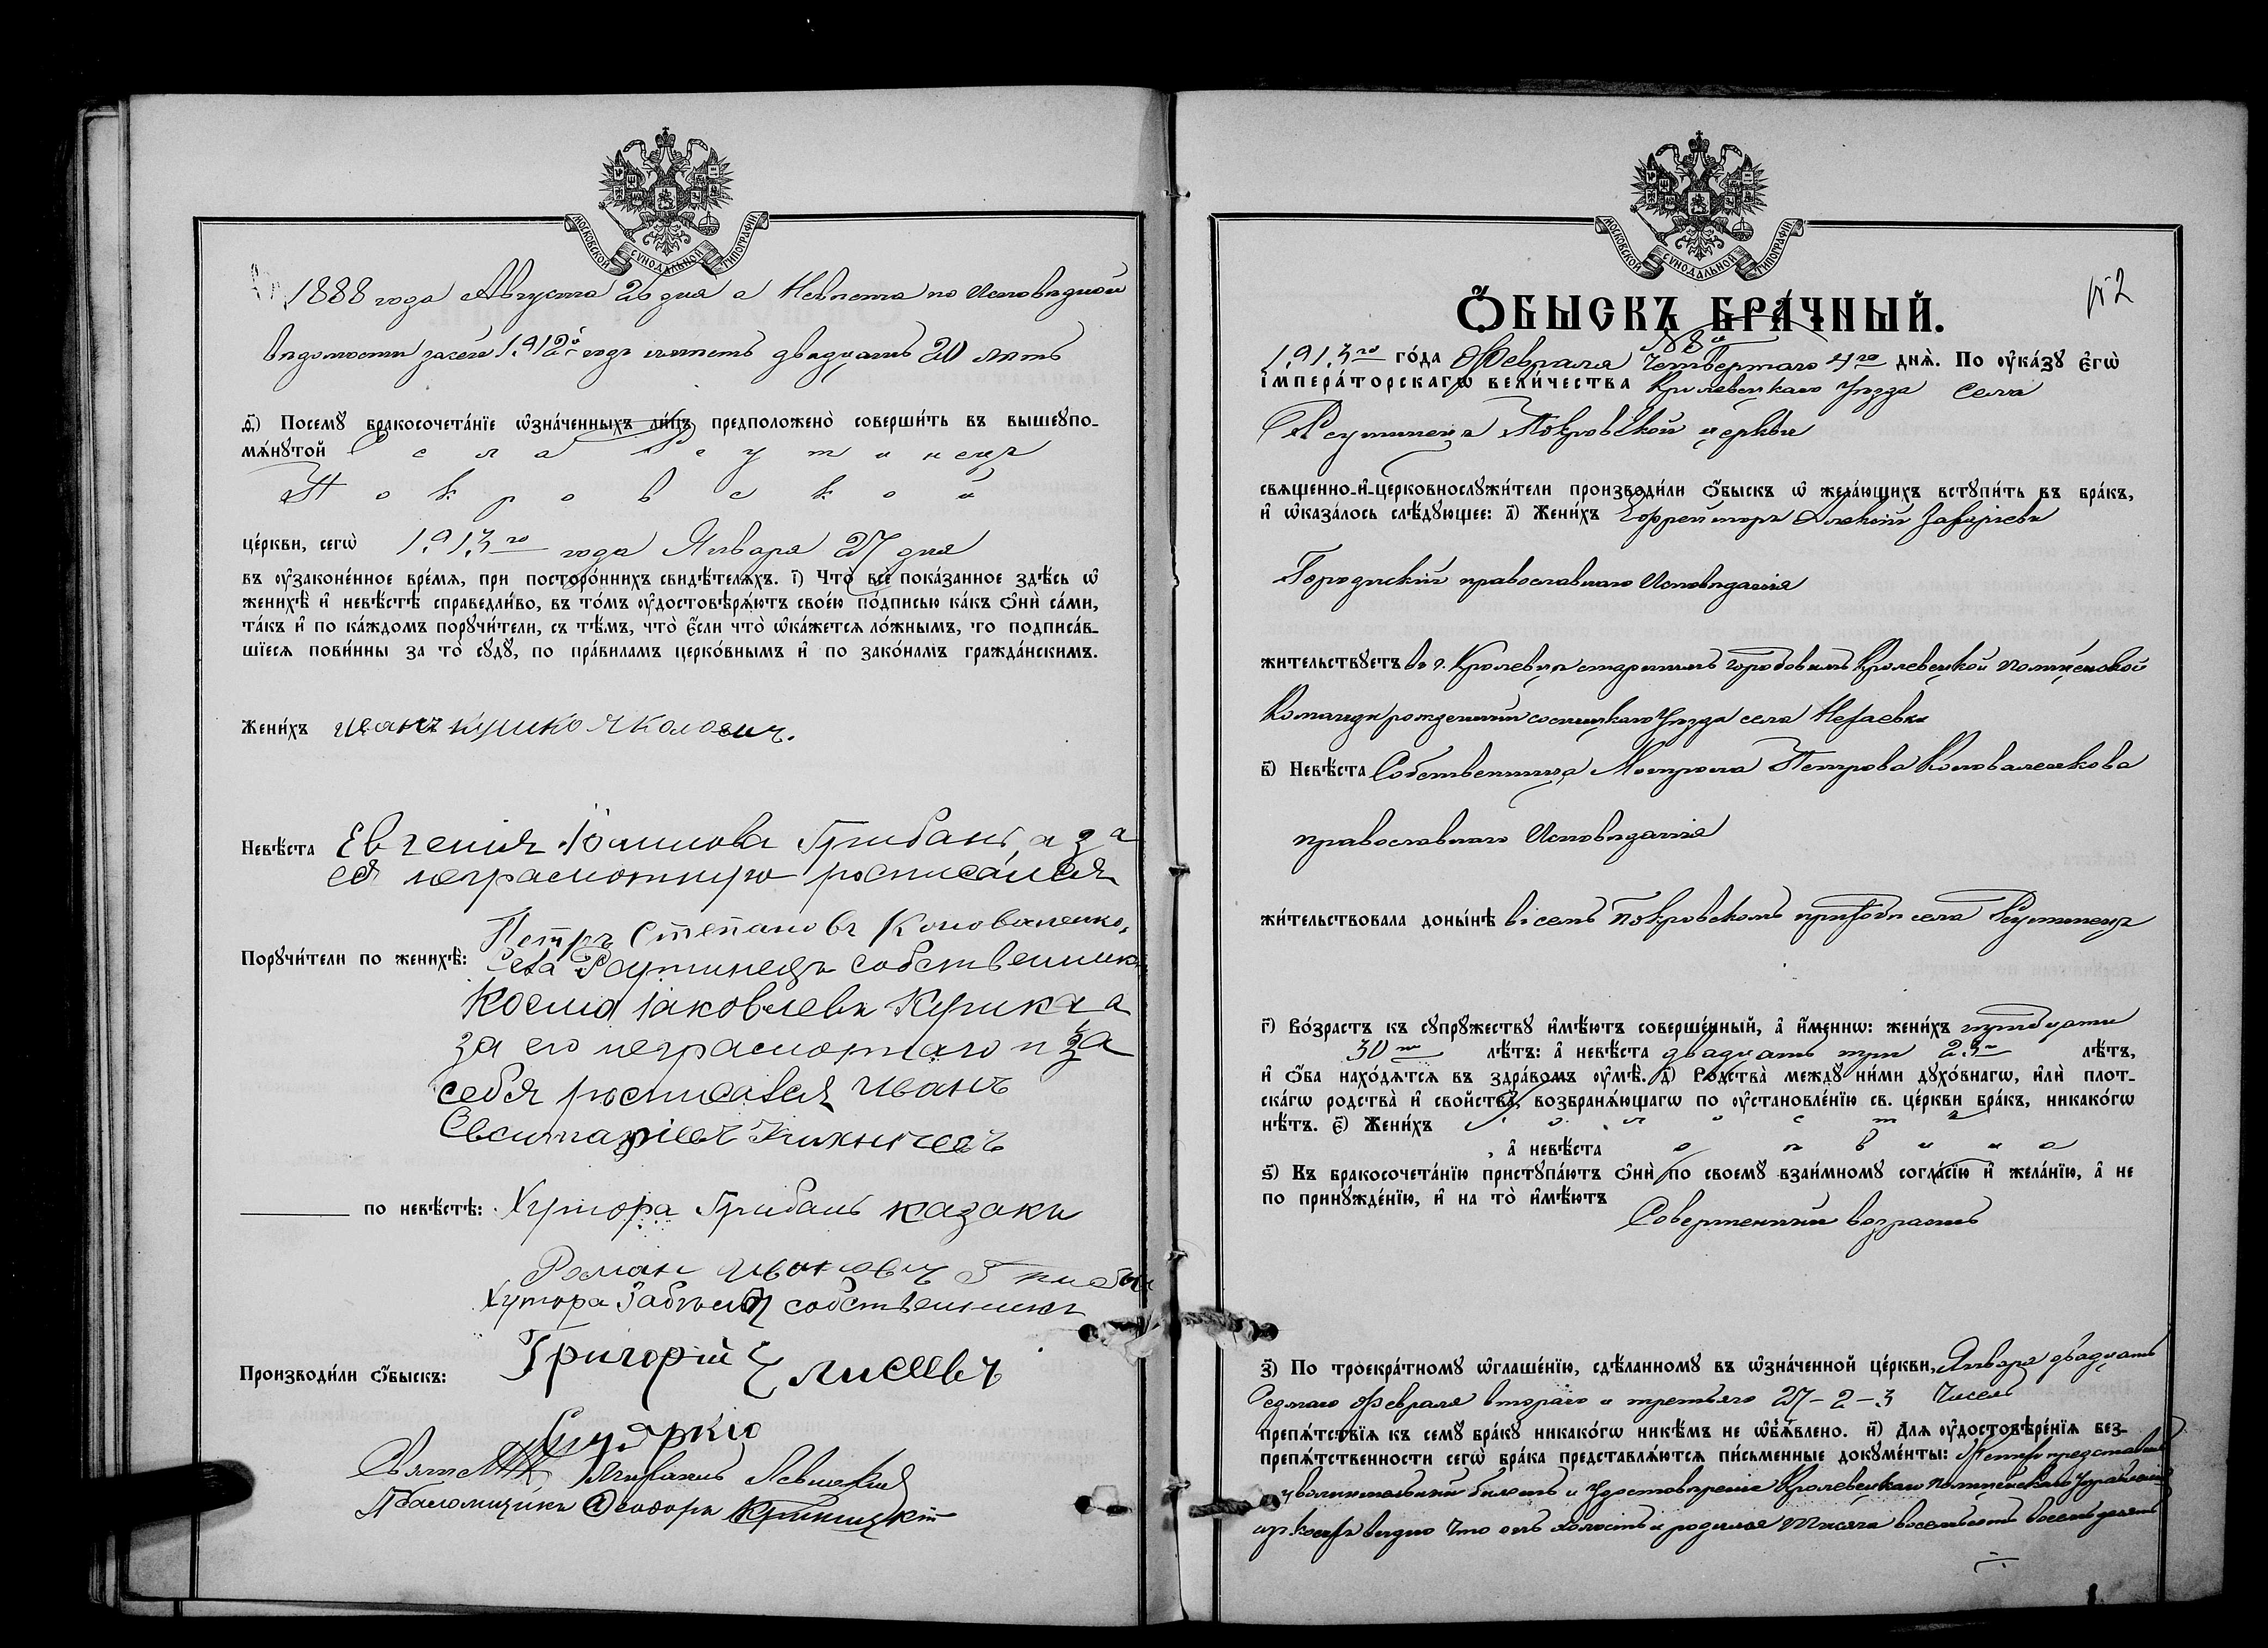 МОСКОВСКОЙ СѴНОДАЛЬНОЙ ТИПОГРАФІИ
1888 года Августа 26 дня а Невѣста по Исповѣдной
вѣдомости за 1912й годъ имѣетъ двадцать 20 лѣтъ
ѳ҃) Посемꙋ̀ бракосочета́нїе ѡ҆зна́ченныхъ ли́цъ предположено̀ соверши́ть въ вышеꙋпо-
мѧ́нꙋтой Села Реутинецъ
Покровской
це́ркви, сегѡ̀ 1913го года Января 27 дня
въ ѹ҆законе́нное вре́мѧ, при посторо́ннихъ свидѣ́телѧхъ. і҃) Что̀ всѐ пока́занное здѣ́сь ѡ҆
женихѣ̀ и҆ невѣ́стѣ справедли́во, въ то́мъ ѹ҆достовѣрѧ́ютъ свое́ю по́дписью ка́къ ѻ҆нѝ са́ми,
та́къ и҆ по ка́ждомъ порꙋчи́тели, съ тѣ́мъ, что̀ є҆́сли что̀ ѡ҆ка́жетсѧ ло́жнымъ, то подписа́в-
шїесѧ пови́нны за то̀ сꙋдꙋ̀, по пра́виламъ церко́внымъ и҆ по зако́намъ гражда́нскимъ.
Жени́хъ иванъ кушко яколович.
Невѣ́ста Евгенія Грибанъ, а за
ея неграмотную росписался
Петръ Степановъ Коноваленко,
Порꙋчи́тели по женихѣ̀: Села Реутинецъ собственники
Косма Іаковлевъ а
за его неграмотнаго и за
себя росписався Иванъ
по невѣ́стѣ: Хутора Грибанъ казаки
Роман
Хутора собственникъ
Производи́ли ѻ҆́быскъ: Григорій Елисеевъ
Свящ. Михаилъ Левицкій
Псаломщикъ Ѳеодоръ
МОСКОВСКОЙ СѴНОДАЛЬНОЙ ТИПОГРАФІИ
№2
Ѻ҆́БЫСКЪ БРА́ЧНЫЙ.
№ 8й
1913го го́да Февраля четвертаго 4го днѧ̀. По ѹ҆ка́зꙋ є҆гѡ̀
і҆мпера́торскагѡ вели́чества Кролевецкаго Уѣзда села
Реутинецъ Покровской церкви
свѧщенно-и҆-церковнослꙋжи́тели производи́ли ѻ҆́быскъ ѡ҆ жела́ющихъ встꙋпи́ть въ бра́къ,
и҆ ѡ҆каза́лось слѣ́дꙋющее: а҃) Жени́хъ Ефрейторъ Алексій Захаріевъ
Городискій православнаго Исповѣданія
жи́тельствꙋетъ въ г. Кролевцѣ старшимъ городовымъ Кролевецкой полицейской
Команды рожденный сосницкаго Уѣзда села
в҃) Невѣ́ста Собственница Матрона Петрова Коноваленкова
православнаго Исповѣданія
жи́тельствовала доны́нѣ въ семъ Покровскомъ приходѣ села Реутинецъ
г҃) Во́зрастъ къ сꙋпрꙋ́жествꙋ и҆мѣ́ютъ соверше́нный, а҆ и҆́менно: жени́хъ тридцати
30ти лѣ́тъ: а҆ невѣ́ста двадцать три 23 лѣ́тъ,
и҆ ѻ҆́ба нахо́дѧтсѧ въ здра́вомъ ѹ҆мѣ̀. д҃) Родства̀ междꙋ̀ ни́ми дꙋхо́внагѡ, и҆лѝ плот-
ска́гѡ родства̀ и҆ свойства̀, возбранѧ́ющагѡ по ѹ҆становле́нїю св. це́ркви бра́къ, никако́гѡ
нѣ́тъ. є҃) Жени́хъ холостъ
, а҆ невѣ́ста дѣвица
ѕ҃) Къ бракосочета́нїю пристꙋпа́ютъ ѻ҆нѝ по своемꙋ̀ взаи́мномꙋ согла́сїю и҆ жела́нїю, а҆ не
по принꙋжде́нїю, и҆ на то̀ и҆мѣ́ютъ
Совершенный возрастъ
з҃) По троекра́тномꙋ ѡ҆глаше́нїю, сдѣ́ланномꙋ въ ѡ҆зна́ченной це́ркви, Января двадцать
седмаго Февраля втораго и третьяго 27–2–3 чиселъ
препѧ́тствїѧ къ семꙋ̀ бра́кꙋ никако́гѡ никѣ́мъ не ѡ҆б̾ѧ́влено. и҃) Для ѹ҆достовѣре́нїѧ без-
препѧ́тственности сегѡ̀ бра́ка представлѧ́ютсѧ пи́сьменные докꙋме́нты: Женихъ представилъ
увольнительный билетъ и Удостовѣреніе Кролевецкаго полицейскаго Управленія
изъ коихъ видно что онъ холостъ и родился тысяча восемьсотъ восемьдесятъ